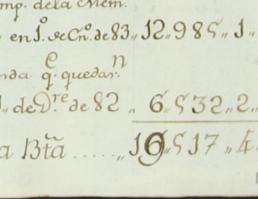 mp. dela Mem.
en 1.º de En.º de 83 ,, 12 ,, 985 ,, 1 ,,
nda q.e quedar.n
de D.re de 82 ,, 6 ,, 532 ,, 2 ,,
a Bta ...... ,, 19 ,, 517 ,, 4